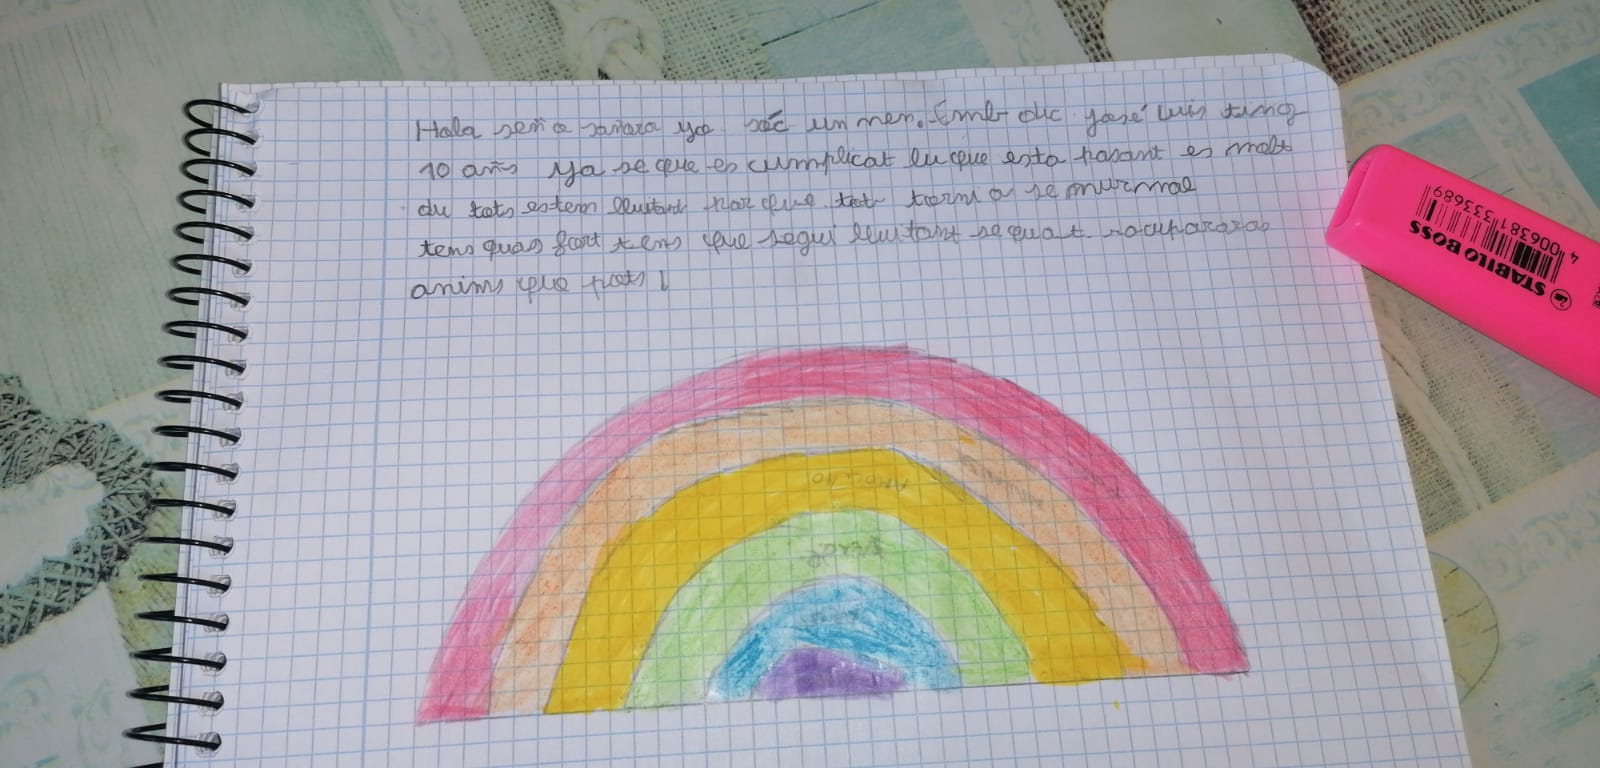 Hola señ o sañora yo sóc un nen. Emb dic José Luis ting
10 años ya se que es cumplicat lu que esta pasant es molt
du tots estem lluitant par que tot torni a se nurmal
tens quas fort tens que segui lluitant sequat racupararas
anims que pots!
AMARILLO
VERDE
STABILO BOSS
4 006381 333689